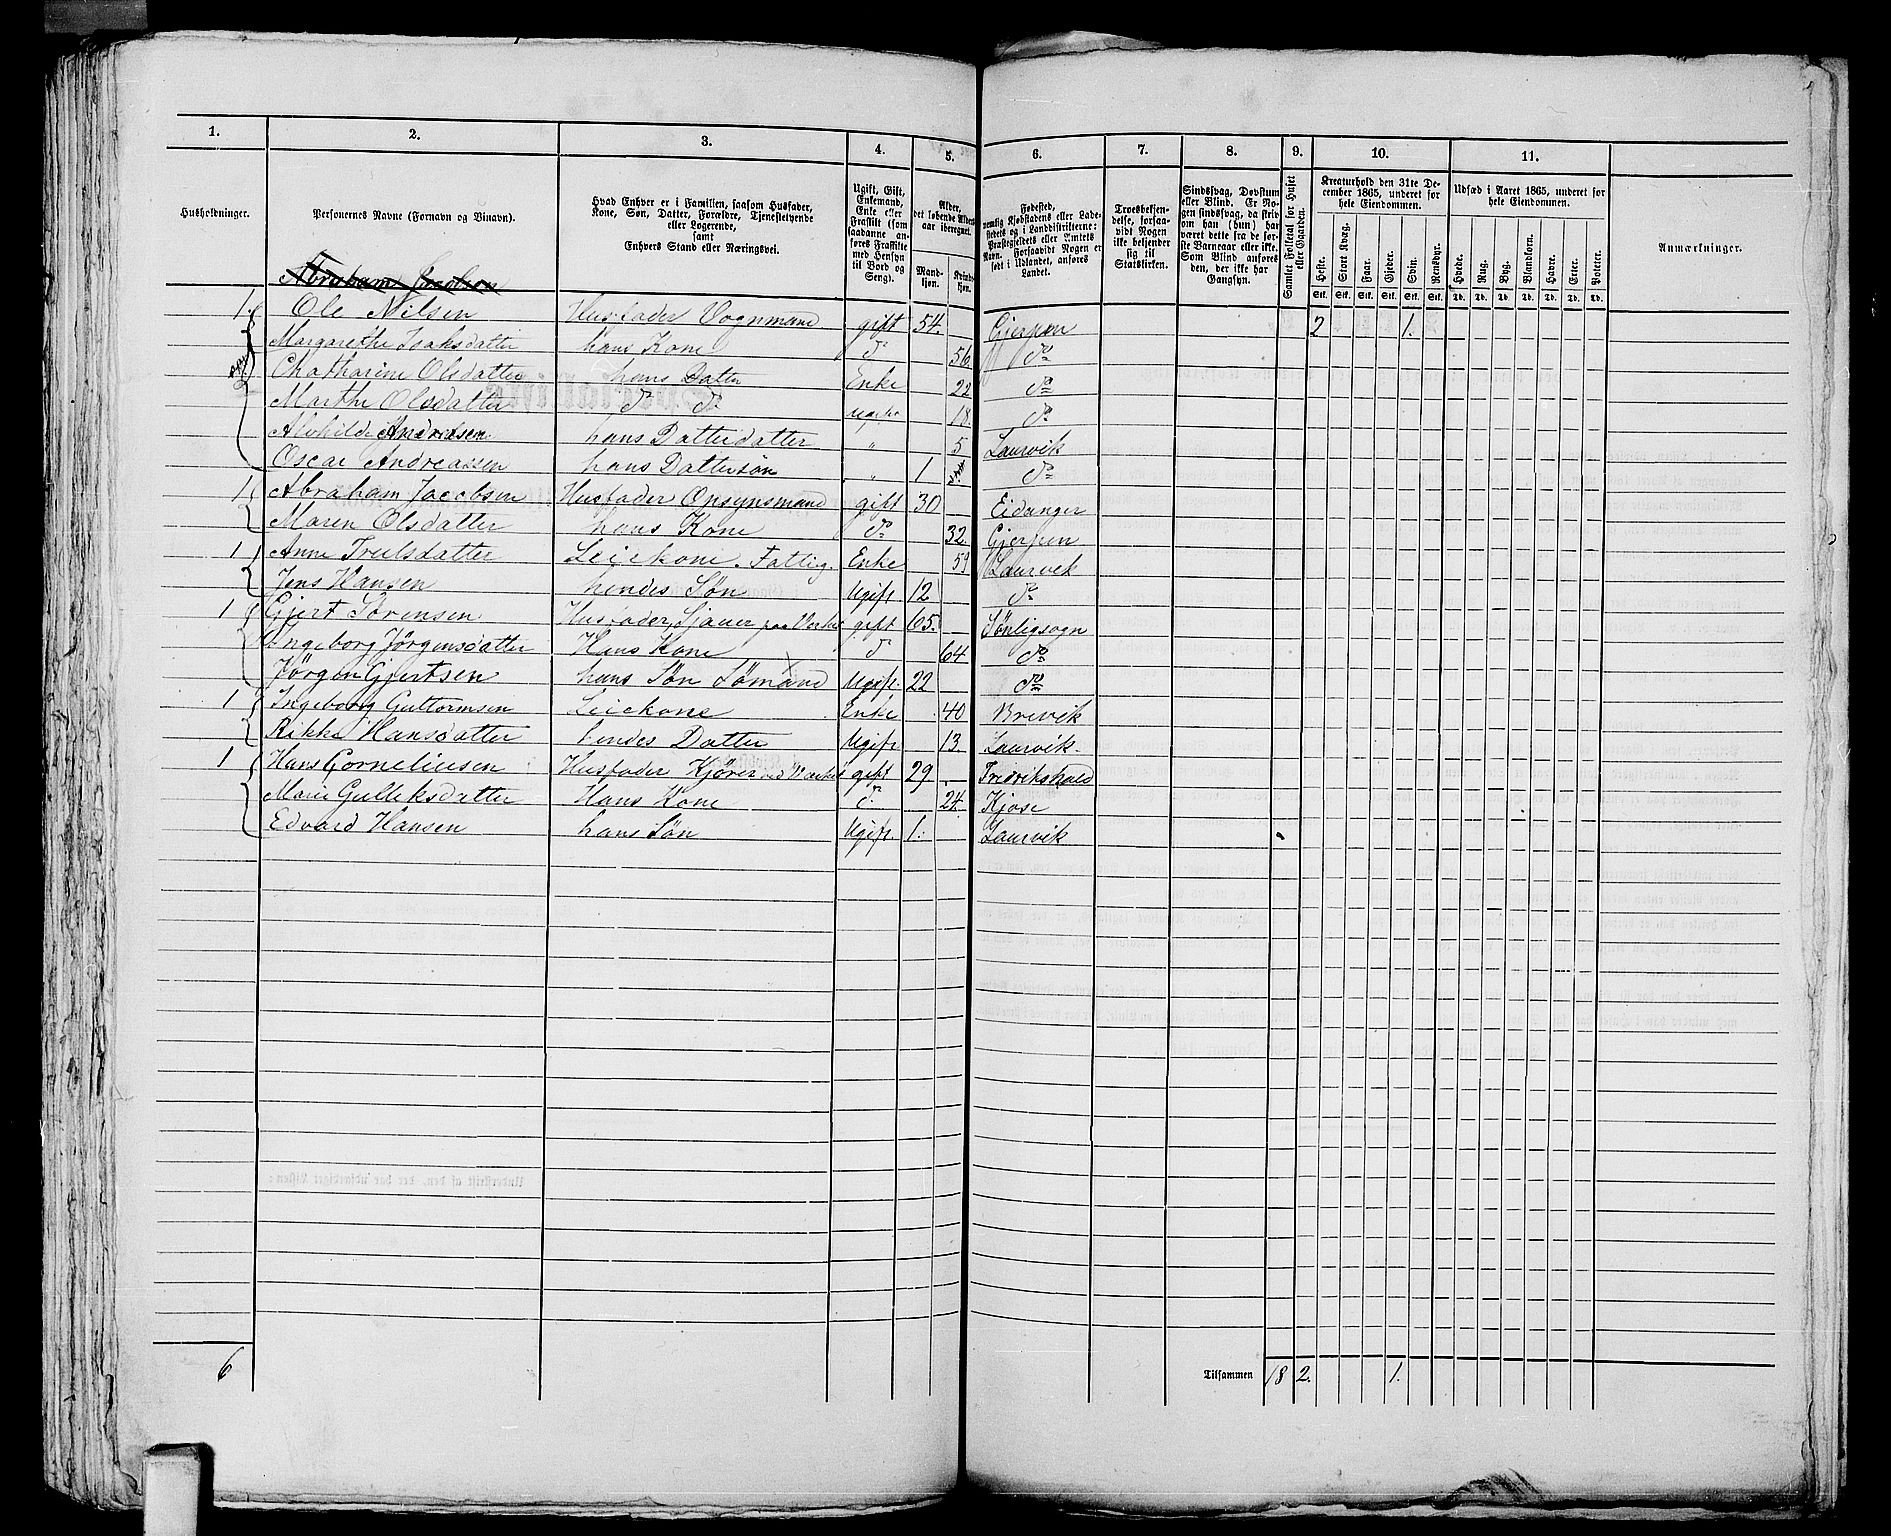 1. 2. 3. 4. 5. 6. 7. 8. 9. 10. 11.
Husholdninger.
Personernes Navne (Fornavn og Binavn).
Hvad Enhver er i Familien, saasom Husfader,
Kone, Søn, Datter, Forældre, Tjenestetyende
eller Logerende,
samt
Enhvers Stand eller Næringsvei.
Ugift, Gift,
Enkemand,
Enke eller
Fraskilt (som
saadanne an-
føres Fraskilte
med Hensyn
til Bord og
Seng).
Alder,
det løbende Alders-
aar iberegnet.
Mand-
kjøn.
Kvinde-
kjøn.
Fødested,
nemlig Kjøbstadens eller Lade-
stedets og i Landdistrikterne:
Præstegjeldets eller Amtets
Navn. Forsaavidt Nogen er
født i Udlandet, anføres
Landet.
Troesbekjen-
delse, forsaa-
vidt Nogen
ikke bekjender
sig til
Statskirken.
Sindssvag, Døvstum
eller Blind. Er No-
gen sindssvag, da skrives
om han (hun) har
været dette fra de før-
ste Barneaar eller ikke.
Som Blind anføres
den, der ikke har
Gangsyn.
Samlet Folketal for Huset
eller Gaarden.
Kreaturhold den 31te De-
cember 1865, underet for
hele Eiendommen.
Heste. Stort Kvæg. Faar. Gjeder. Svin. Rensdyr.
Stk. Stk. Stk. Stk. Stk. Stk.
Udsæd i Aaret 1865, underet for
hele Eiendommen.
Hvede. Rug. Byg. Blandkorn. Havre. Erter. Poteter.
Td. Td. Td. Td. Td. Td. Td.
Anmærkninger.
Abraham Jacobsen
1. Ole Nilsen Husfader Vognmand gift 54. Gjerpen 2 1.
Margarethe Isaksdatter hans Kone do 56. do
Chatharine Olsdatter hans Datter Enke 22 do
Marthe Olsdatter do do Ugift 18. do
Alvhilde Andreasen hans Datterdatter " 5 Laurvik
Oscar Andreassen hans Dattersøn " 1 do
1 Abraham Jacobsen Husfader Opsynsmand gift 30 Eidanger
Maren Olsdatter hans Kone do 32. Gjerpen
1 Anne Trulsdatter Leiekone. Fattig. Enke 59 Laurvik
Jens Hansen hendes Søn Ugift 12 do
1 Gjert Sørensen Husfader, Sjauer paa Verket gift 65. Sønligsogn
Ingeborg Jørgensdatter Hans Kone do 64. do
Jørgen Gjertsen hans Søn Sømand Ugift. 22 do
1 Ingeborg Guttormsen Leiekone Enke 40 Brevik
Rikke Hansdatter hendes Datter Ugift 13. Laurvik
1 Hans Corneliusen Husfader Kjører ved Værket gift 29 Fredrikshald
Marie Gulleksdatter Hans Kone do 24. Kjose
Edvard Hansen hans Søn Ugift 1. Laurvik
6 Tilsammen 18 2. 1.